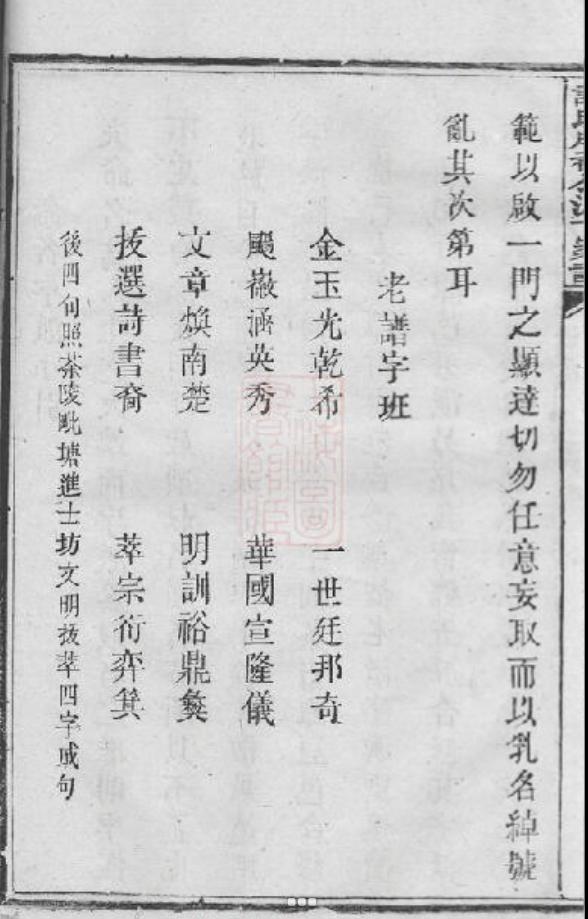 範以啟一門之顯達切勿任意妄取而以乳名綽號
亂其次第耳
老譜字班
金玉光乾希　一世廷邦奇
颺徽涵英秀　華國宣隆儀
文章煥南楚　明訓裕鼎彝
拔選詩書裔　萃宗衍弈箕
後四句照茶陵毗塘進士坊文明拔萃四字成句